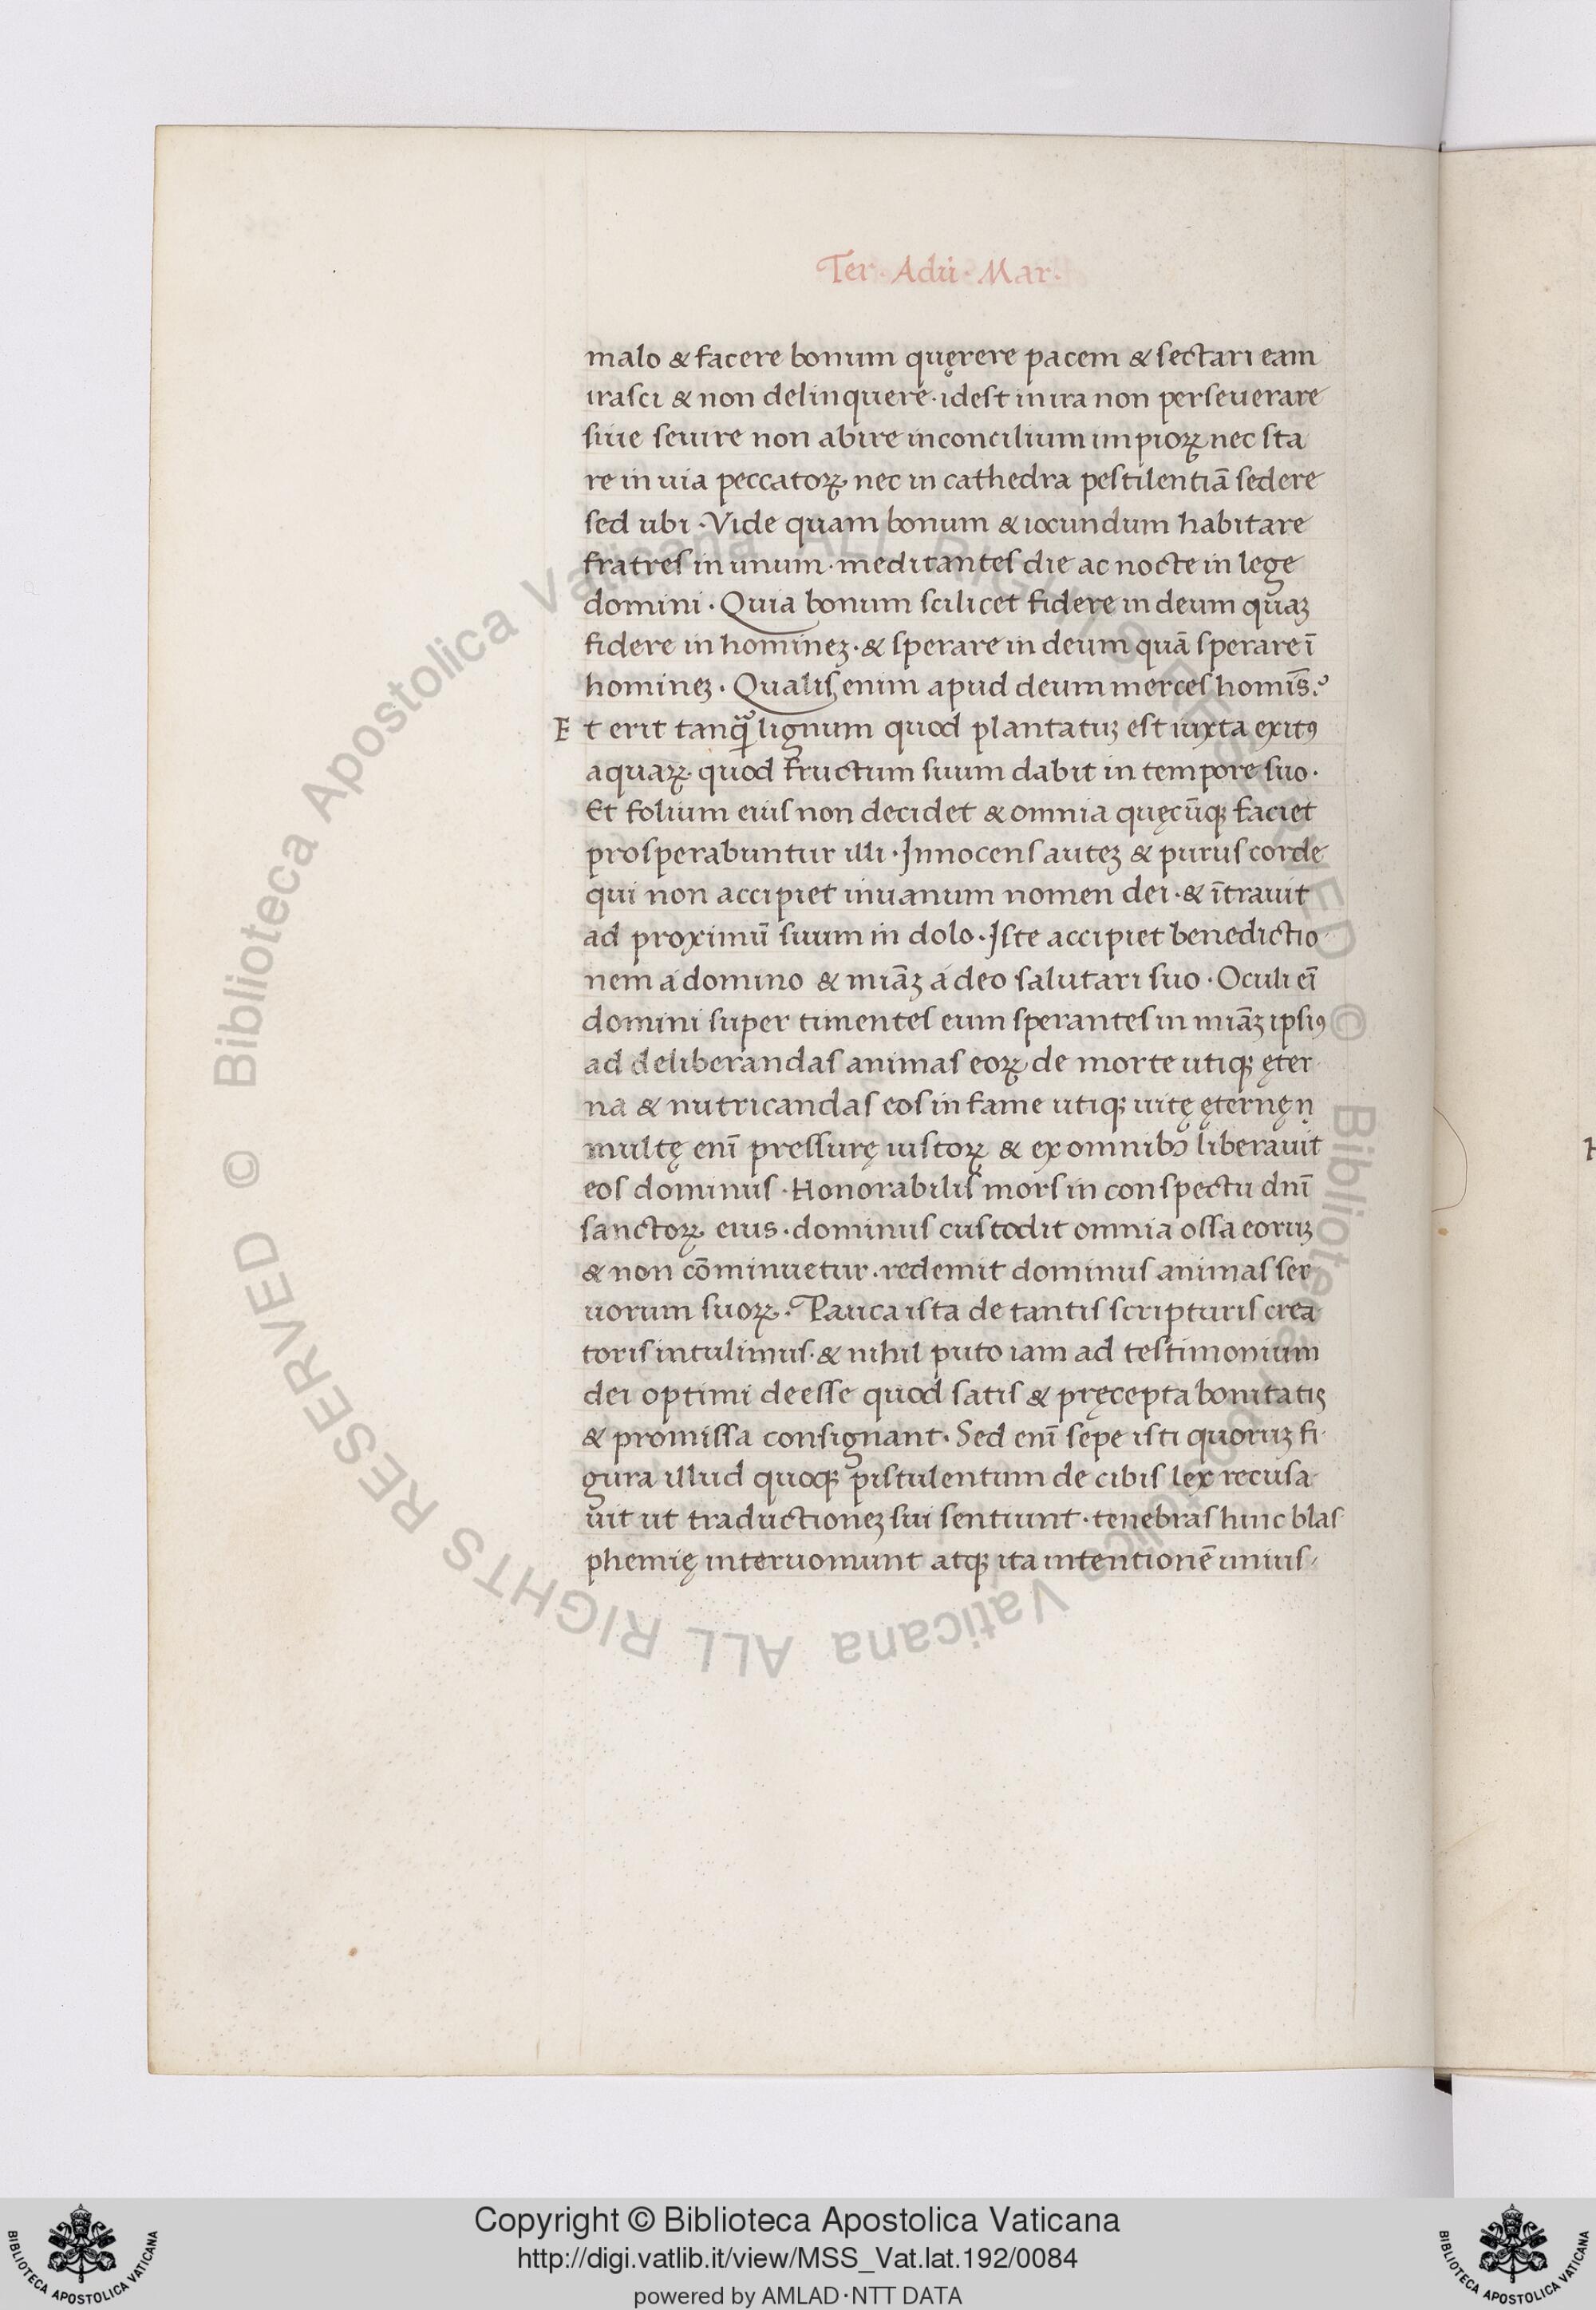 Ter · Adu · Mar ·
malo & facere bonum quęrere pacem & sectari eam
irasci & non delinquere · idest in ira non perseuerare
siue seuire non abire inconcilium impioꝝ nec sta
re in uia peccatoꝝ nec in cathedra pestilentiā sedere
sed ubi · Vide quam bonum & iocundum habitare
fratres in unum · meditantes die ac nocte in lege
domini · Quia bonum scilicet fidere in deum quaꝫ
fidere in homineꝫ · & sperare in deum quā sperare ī
homineꝫ · Qualis enim apud deum merces homīs ?
Et erit tanqᷓ lignum quod plantatuꝫ est iuxta exitꝰ
aquaꝝ quod fructum suum dabit in tempore suo ·
Et folium eius non decidet & omnia quęcūqꝫ faciet
prosperabuntur illi · Innocens auteꝫ & purus corde
qui non accipiet inuanum nomen dei · & ītrauit
ad proximū suum in dolo · Iste accipiet benedictio
nem á domino & miāꝫ á deo salutari suo · Oculi eī
domini super timentes eum sperantes in miāꝫ ipsiꝰ
ad deliberandas animas eoꝝ de morte utiqꝫ ęter
na & nutricandas eos in fame utiqꝫ uitę ęternę ṇ
multę enī pressurę iustoꝝ & ex omnibꝰ liberauit
eos dominus · Honorabilis mors in conspectu dnī
sanctoꝝ eius · dominus custodit omnia ossa eoruꝫ
& non cōminuetur · redemit dominus animas ser
uorum suoꝝ · Pauca ista de tantis scripturis crea
toris intulimus · & nihil puto iam ad testimonium
dei optimi deesse quod satis & pręcepta bonitatis
& promissa consignant · Sed enī sepe isti quoruꝫ fi
gura illud quoqꝫ pistulentum de cibis lex recusa
uit ut traductioneꝫ sui sentiunt · tenebras hinc blas
phemię interuomunt atqꝫ ita intentionē unius
© Biblioteca Apostolica Vaticana ALL RIGHTS RESERVED © Biblioteca Apostolica Vaticana ALL RIGHTS RESERVED
Copyright © Biblioteca Apostolica Vaticana
http://digi.vatlib.it/view/MSS_Vat.lat.192/0084
powered by AMLAD·NTT DATA
BIBLIOTECA APOSTOLICA VATICANA
BIBLIOTECA APOSTOLICA VATICANA